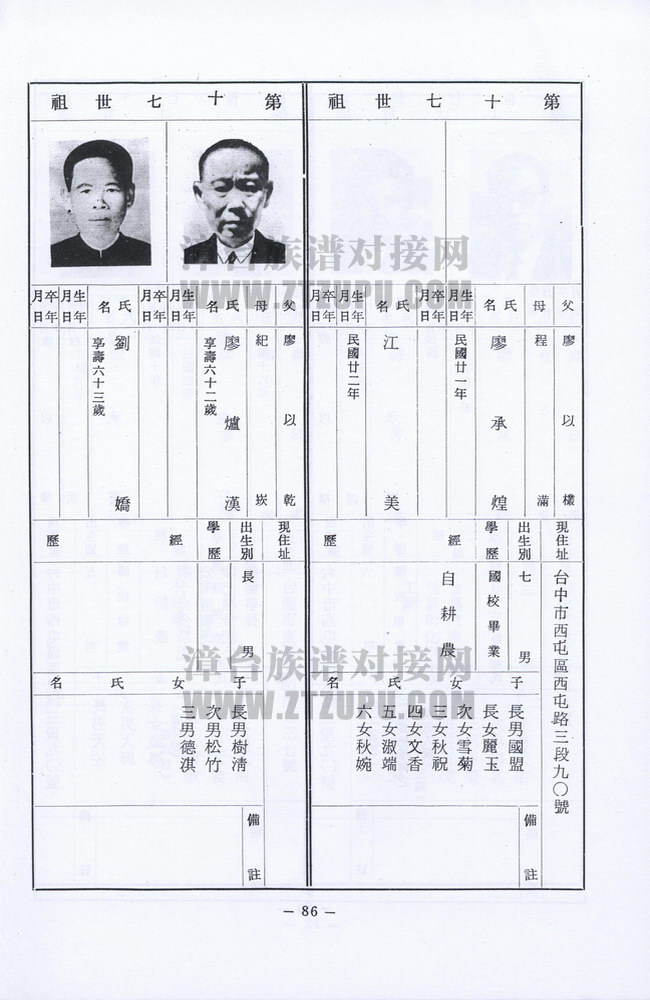 第十七世祖
父 廖以欉
母 程滿
氏名 廖承煌
生年月日 民國廿一年
卒年月日
氏名 江美
生年月日 民國廿二年
卒年月日
現住址 台中市西屯區西屯路三段九〇號
出生別 七男
學歷 國校畢業
經歷 自耕農
子女氏名
長男國盟
長女麗玉
次女雪菊
三女秋祝
四女文香
五女淑端
六女秋婉
備註
第十七世祖
父 廖以乾
母 紀崁
氏名 廖爐漢
享壽六十二歲
生年月日
卒年月日
氏名 劉嬌
享壽六十三歲
生年月日
卒年月日
現住址
出生別 長男
學歷
經歷
子女氏名
長男樹清
次男松竹
三男德淇
備註
漳台族谱对接网
WWW.ZTZUPU.COM
漳台族谱对接网
WWW.ZTZUPU.COM
— 86 —